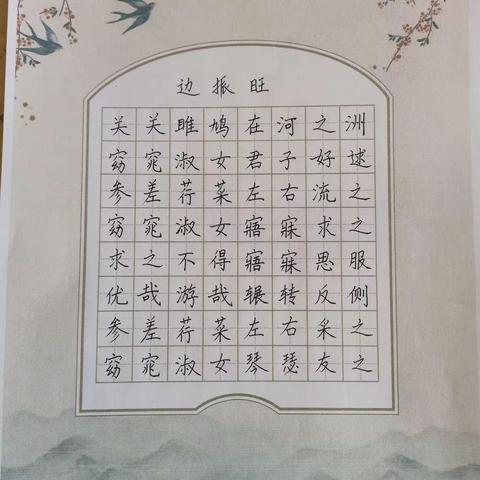 边振旺
关关雎鸠在河之洲
窈窕淑女君子好逑
参差荇菜左右流之
窈窕淑女寤寐求之
求之不得寤寐思服
优哉游哉辗转反侧
参差荇菜左右采之
窈窕淑女琴瑟友之